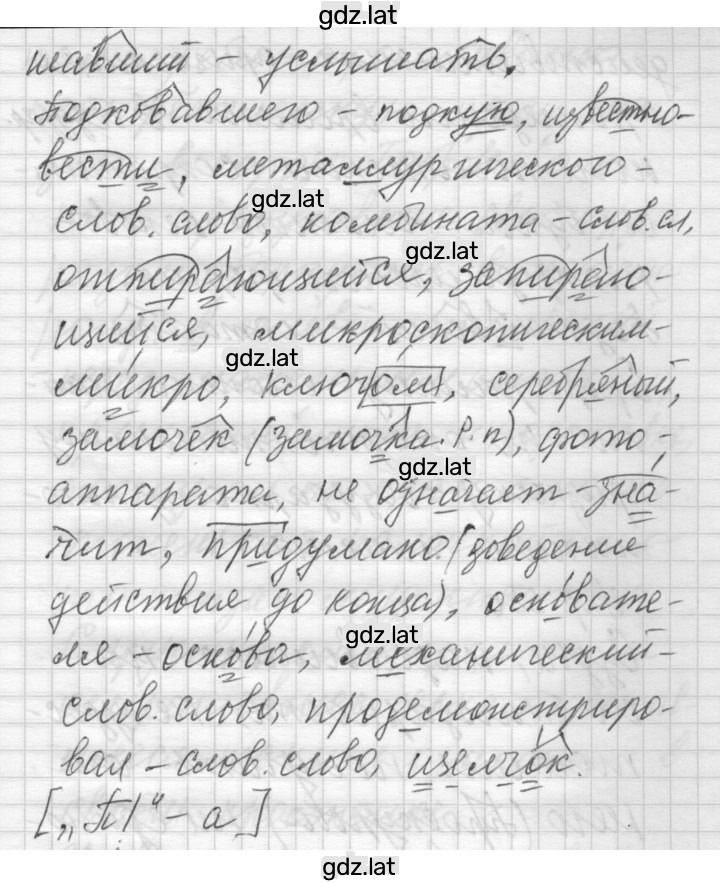 gdz.lat
шавший – услышать.
Подковавшего – подкую, известно-
вести, металлургического -
gdz.lat
слов. слово, комбината – слов.сл,
gdz.lat
отпирающийся, запираю-
щийся, микроскопическим-
gdz.lat
микро, ключом, серебряный,
замочек (замочка. Р.п), фото-
gdz.lat
аппарата, не означает – зна-
чит, придумано (доведение
действия до конца), основате-
gdz.lat
ля – основа, механический-
слов. слово, продемонстриро-
вал – слов. слово, щелчок.
[„П!" – а]
gdz.lat